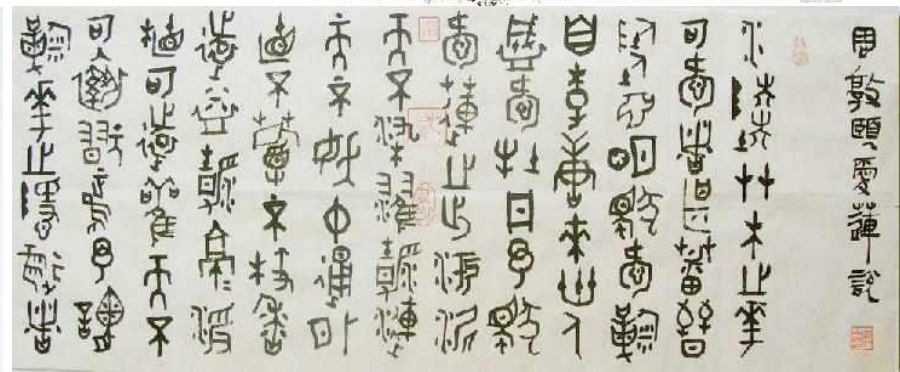 周敦頤愛蓮說
水陸艸木之華
可愛者甚蕃晉
陶淵明獨愛菊
自李唐來世人
盛愛牡丹予獨
愛蓮之出淤泥
而不染濯清漣
而不妖中通外
直不蔓不枝香
遠益清亭亭淨
植可遠觀而不
可褻玩焉予謂
菊華之隱逸者